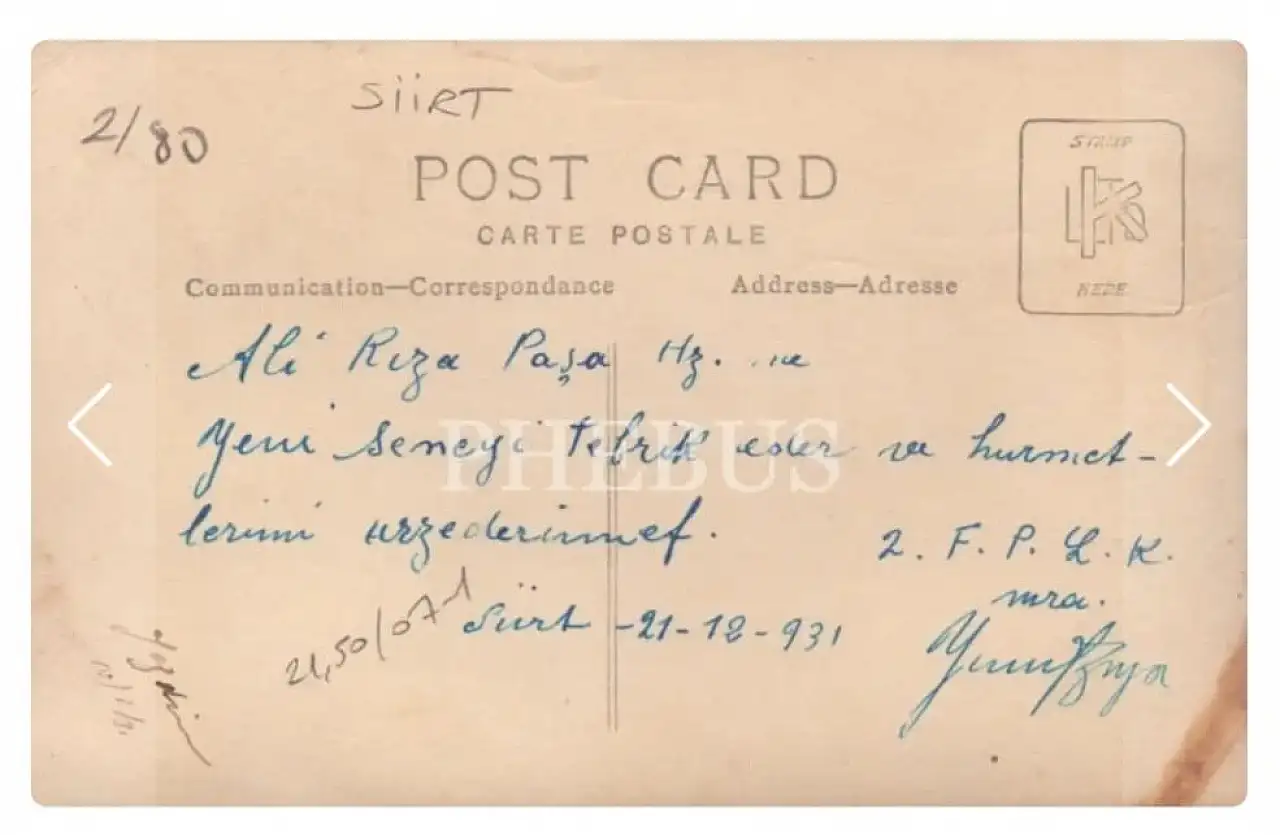 SİİRT
2/80
POST CARD
CARTE POSTALE
STAMP
HERE
Communication—Correspondance
Address—Adresse
Ali Rıza Paşa Hz. ne
Yeni seneyi tebrik eder ve hurmet-
lerimi arzederimef.
2. F. P. L. K.
mra.
21,50/07-1
Siirt -21-12-931
PHEBUS